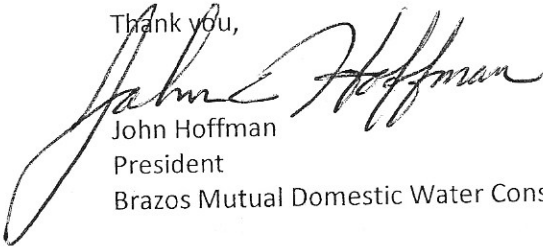 Thank you,
John E Hoffman
John Hoffman
President
Brazos Mutual Domestic Water Cons